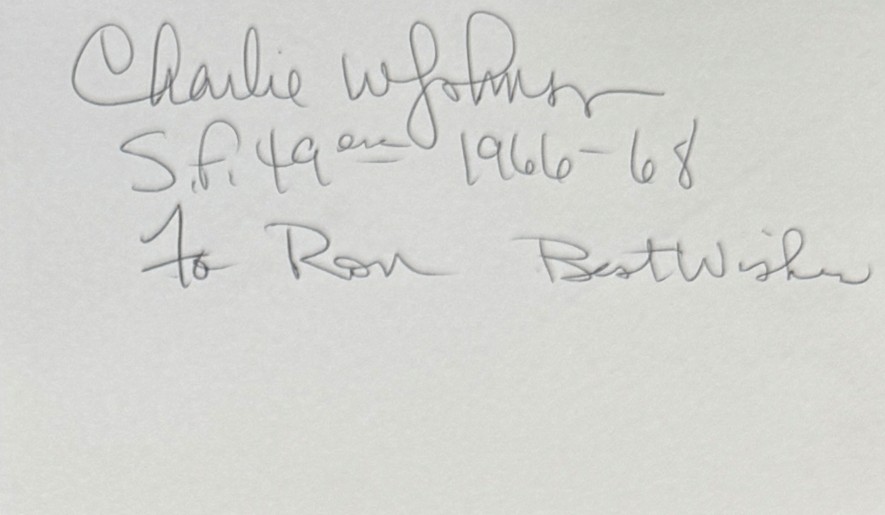 Charlie W Johnson
S.F. 49ers 1966-68
To Ron Best Wishes